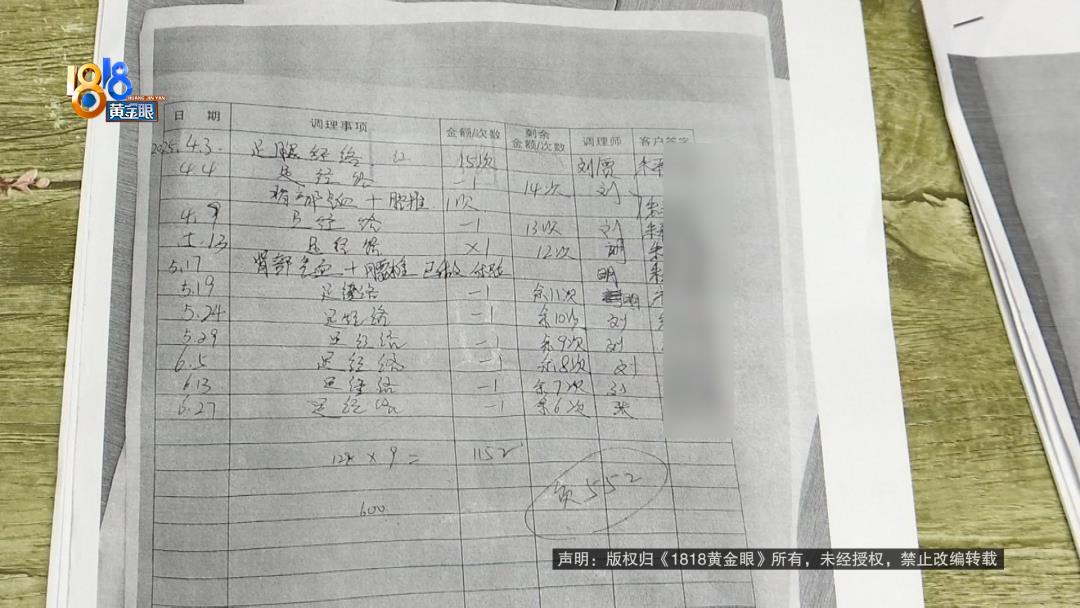 1818
HUANG JIN YAN
黄金眼
日 期 调理事项 金额/次数 剩余金额/次数 调理师 客户签字
2025.4.3. 足 经络 15次 刘贾 朱
4.4 足经络 -1 14次 刘
肾部 + 腰椎 1次 朱
4.9 足经络 -1 13次 刘 朱
5.13 足经络 ×1 12次 明 朱
5.17 肾部 + 腰椎 已做 明 朱
5.19 足经络 -1 余11次 明
5.24 足经络 -1 余10次 刘
5.29 足经络 -1 余9次 刘
6.5 足经络 -1 余8次 刘
6.13 足经络 -1 余7次 刘
6.27 足经络 -1 余6次 张
128 × 9 = 1152
欠552
600
声明：版权归《1818黄金眼》所有，未经授权，禁止改编转载